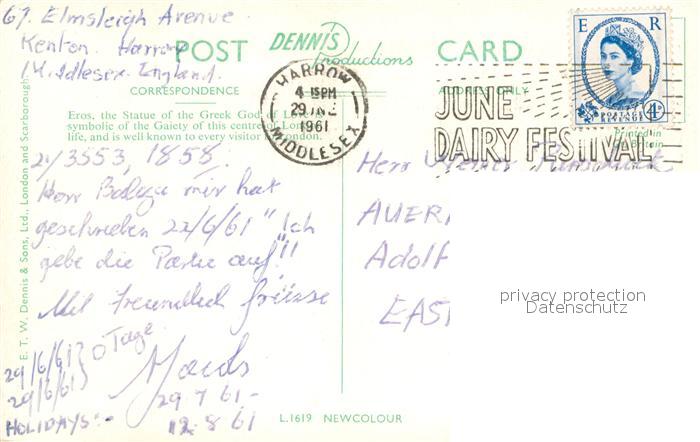 67. Elmsleigh Avenue.
Kenton. Harrow
Middlesex. England.
POST DENNIS Productions CARD
CORRESPONDENCE
ADDRESS ONLY
Eros, the Statue of the Greek God of Love is
symbolic of the Gaiety of this centre of London
life, and is well known to every visitor to London.
E. T. W. Dennis & Sons, Ltd., London and Scarborough
HARROW
4 15PM
29 JNE
1961
MIDDLESEX
JUNE
DAIRY FESTIVAL
E R
4D
POSTAGE
REVENUE
Printed in
Gt. Britain
2)/3553, 1858.
Herr mir hat
geschrieben 22/6/61 "Ich
gebe die Partie auf"!!
Mit Freundlich grüsse
29/6/61
29/6/61 } 0 Tage
HOLIDAYS:- 29 7 61 -
12.8 61
Herr Werner
AUER
Adolf
EAS
privacy protection
Datenschutz
L.1619 NEWCOLOUR